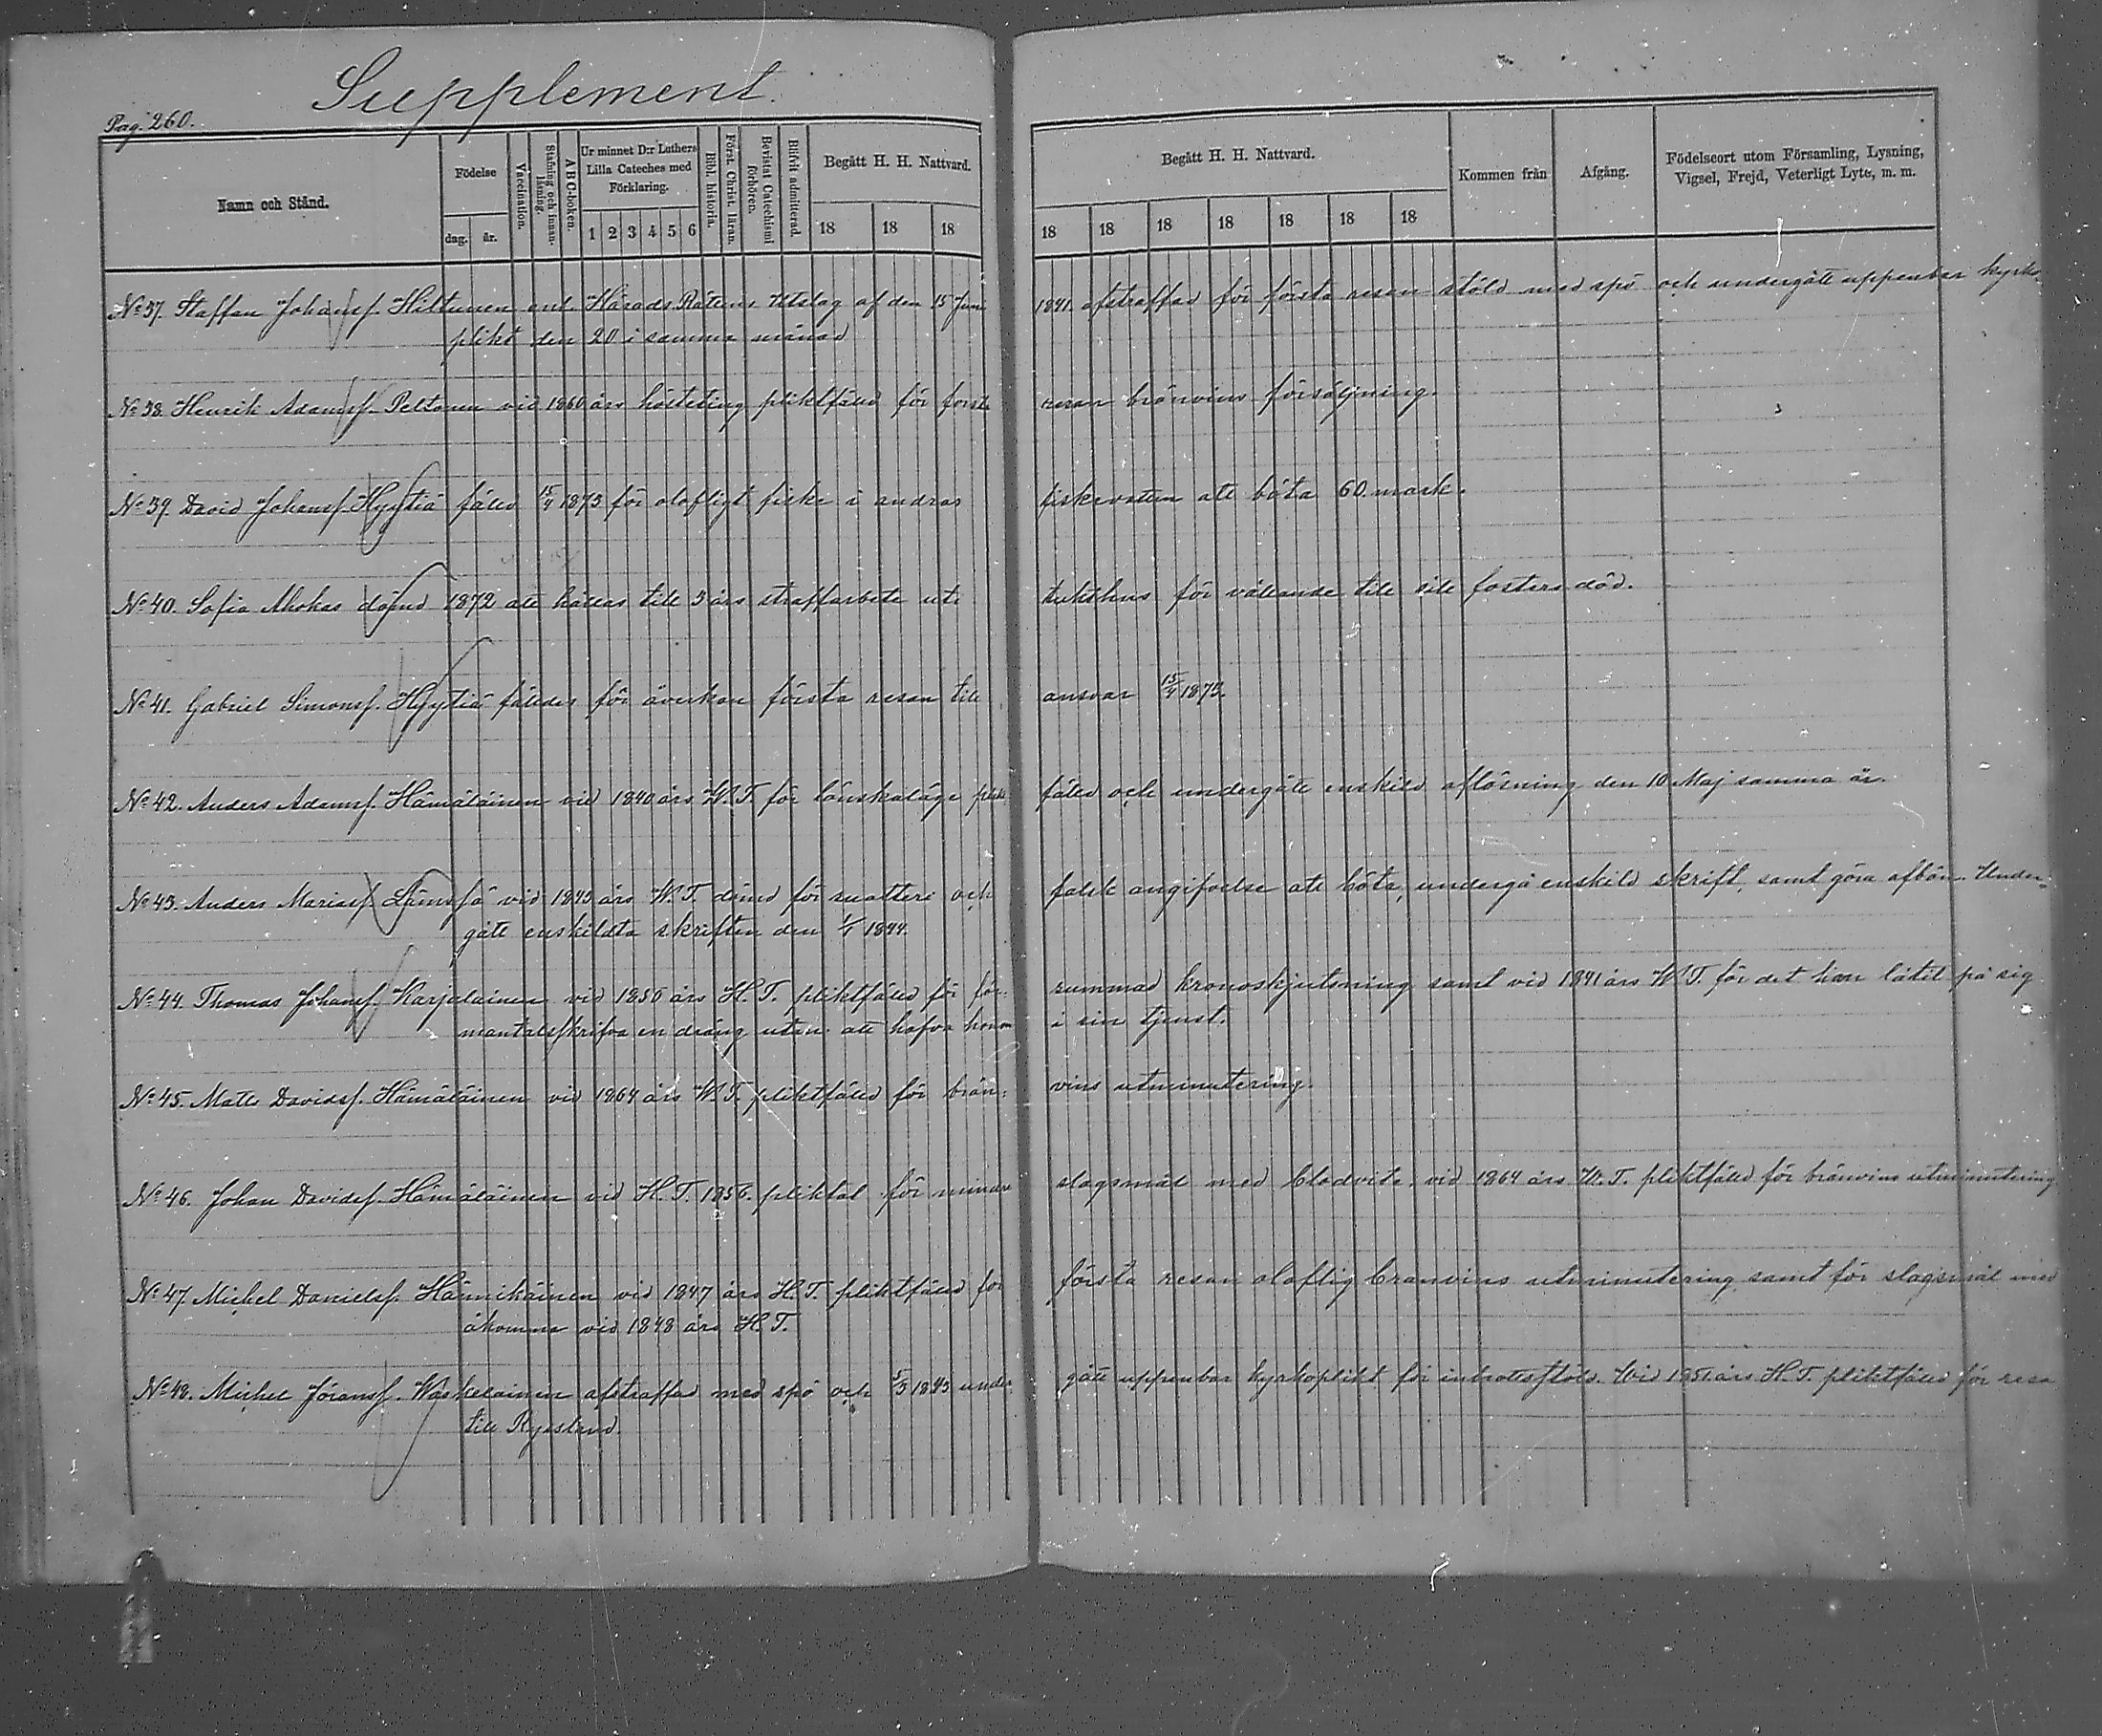 Supplement.
Pag. 260.
Namn och Stånd.
Födelse
dag. år.
Vaccination.
Stafning och innanläsning.
ABC-boken.
Ur minnet D:r Luthers Lilla Cateches med Förklaring.
1 2 3 4 5 6
Bibl. historia.
Först. Christ. läran.
Bevistat Catechismi förhören.
Blifvit admitterad.
Begått H. H. Nattvard.
18 18 18
Begått H. H. Nattvard.
18 18 18 18 18 18 18
Kommen från
Afgång.
Födelseort utom Församling, Lysning,
Vigsel, Frejd, Veterligt Lyte, m. m.
No 37. Staffan Johansf. Hiltunen enl. Härads Rättens Utslag af den 15 Juni 1841. afstraffad för första resan stöld med spö och undergått uppenbar kyrko-
plikt den 20 i samma månad
No 38. Henrik Adamsf. Peltonen vid 1860 års höstting pliktfälld för första resan bränvins försäljning.
No 39. David Johansf. Hyytiä fälld 15/4 1873 för olofligt fiske i andras fiskevatten att böta 60 mark.
No 40. Sofia Ahokas dömd 1872 att hållas till 3 års straffarbete uti tukthus för vållande till sitt fosters död.
No 41. Gabriel Simonsf. Hyytiä fälldes för åverkan första resan till ansvar 15/4 1873.
No 42. Anders Adamsf. Hämäläinen vid 1840 års W. T. för lönskaläge plikt fälld och undergått enskild aflösning den 10 Maj samma år.
No 43. Anders Mariasf. Lämsä vid 1843 års W. T. dömd för snatteri och falsk angifvelse att böta, undergå enskild skrift, samt göra afbön. Under-
gått enskildta skriften den 1/1 1844.
No 44. Thomas Johansf. Karjalainen vid 1856 års H. T. pliktfälld för för-summad kronoskjutsning samt vid 1841 års W. T. för det han låtit på sig
mantalsskrifva en dräng utan att hafva honom i sin tjenst.
No 45. Matts Davidsf. Hämäläinen vid 1864 års W. T. pliktfälld för brän-vins utminutering.
No 46. Johan Davidsf. Hämäläinen vid H. T. 1856. pliktat för mindre slagsmål med blodvite, vid 1864 års W. T. pliktfälld för bränvins utminutering
No 47. Michel Danielsf. Hännikäinen vid 1847 års H. T. pliktfälld för första resan oloflig bränvins utminutering samt för slagsmål med
åkomma vid 1848 års H. T.
No 48. Michel Jöransf. Waskelainen afstraffad med spö och 5/3 1843 under-gått uppenbar kyrkoplikt för inbrottsstöld. Wid 1851 års H. T. pliktfälld för resa
till Ryssland.